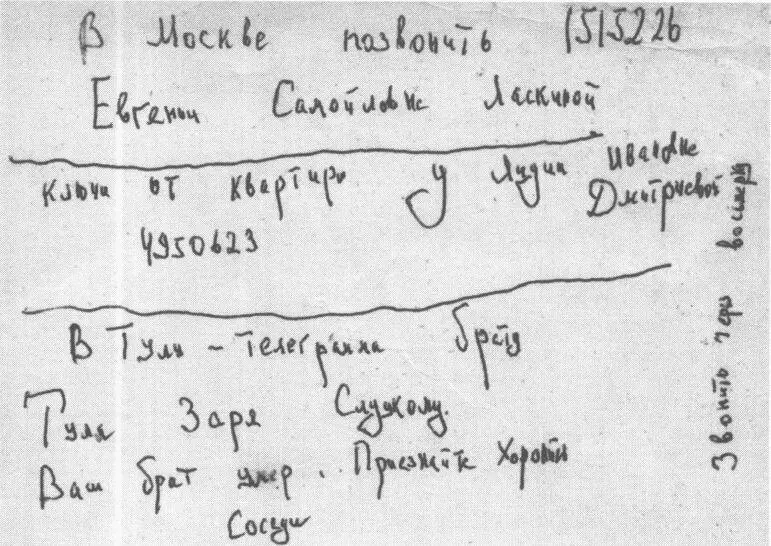 В Москве позвонить 1515226
Евгении Самойловне Ласкиной
Ключи от квартиры у Лидии Ивановне Дмитриевой
4950623
В Тулы - Телеграмма брату
Тула Заря Слуцкому.
Ваш брат умер. Приезжайте Хоронить
Соседи
Звонить через восьмерку